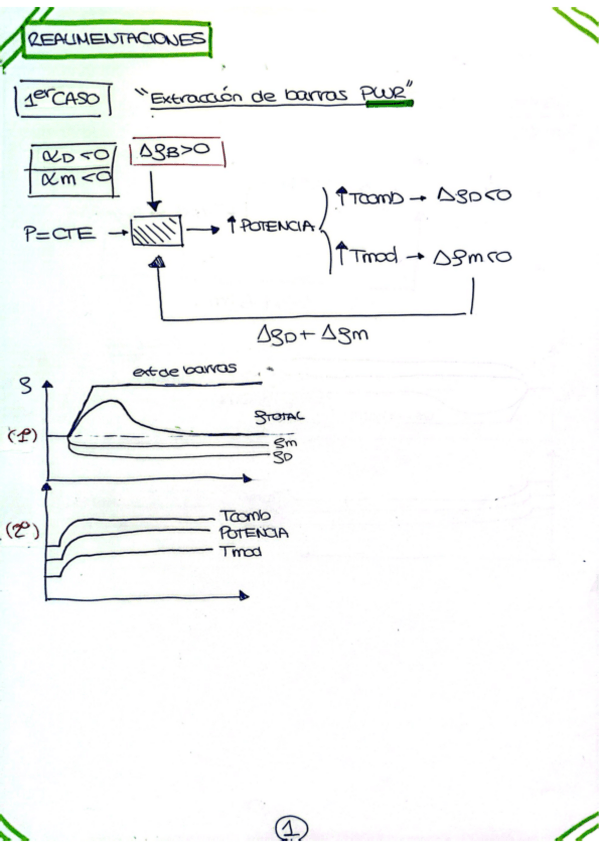 REALIMENTACIONES
1er CASO "Extracción de barras PWR"
αD<0 ΔρB>0
αm<0
P=CTE → → ↑ POTENCIA
↑Tcomb → ΔρD<0
↑Tmod → Δρm<0
ΔρD + Δρm
ext de barras
ρ
ρTOTAL
(1º)
ρm
ρD
Tcomb
(2º)
POTENCIA
Tmod
1